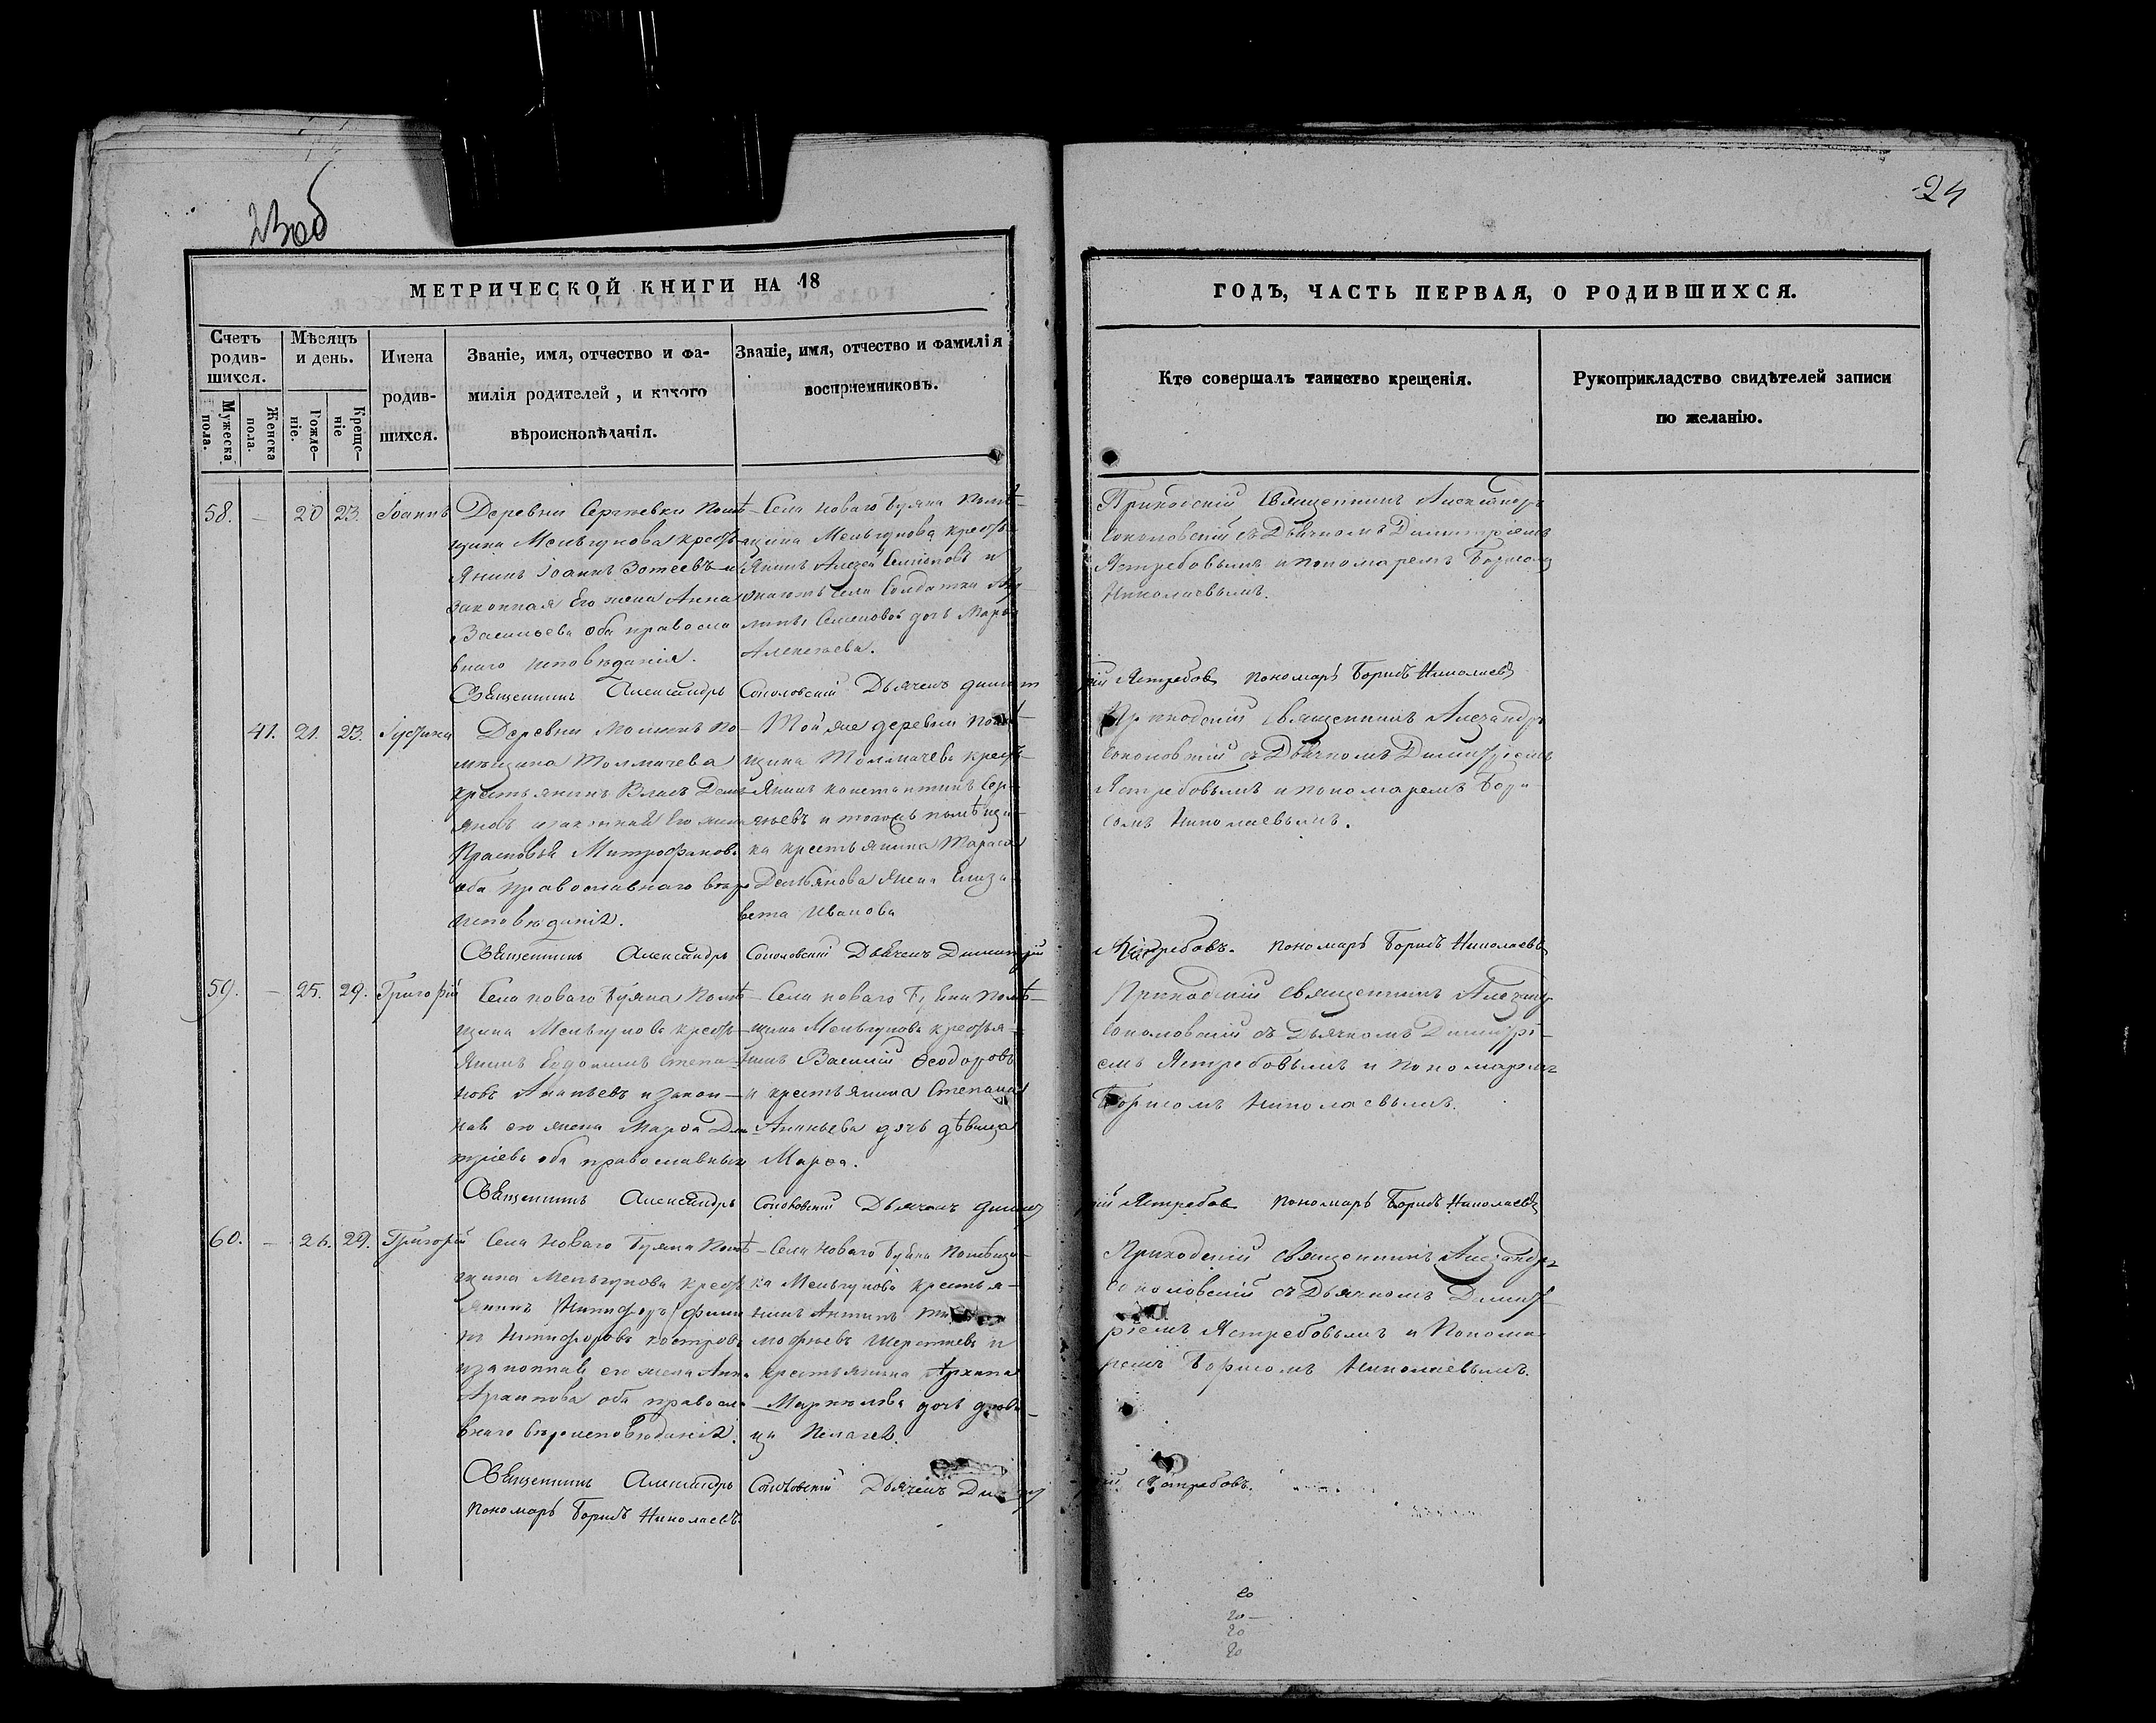 23об
24
МЕТРИЧЕСКОЙ КНИГИ НА 18
Счетъ родив-шихся.
Мужеска пола.
Женска пола.
Мѣсяцъ и день.
Рожде-ніе.
Креще-ніе
Имена родив-шихся.
Званіе, имя, отчество и фа-
милія родителей, и какого
вѣроисповѣданія.
Званіе, имя, отчество и фамилія
воспріемниковъ.
ГОДЪ, ЧАСТЬ ПЕРВАЯ, О РОДИВШИХСЯ.
Кто совершалъ таинство крещенія.
Рукоприкладство свидѣтелей записи
по желанію.
58. – 20 23. Іоаннъ
Деревни Сергѣевки Помѣ-
щика Мельгунова кресть-
янинъ Іоаннъ Зотеевъ и
законная Его жена Анна
Васильева оба правосла
внаго исповѣданія.
Села Новаго Буяна Помѣ-
щика Мельгунова кресть-
янинъ Алезѣй Семеновъ и
села Солдатки
Семеновой дочь Марья
Алексѣева.
Приходскій Священникъ Александръ
Соколовскій съ Дьячкомъ Димитріемъ
Ястребовымъ и пономаремъ Борисомъ
Николаевымъ.
Священникъ Александръ Соколовскій Дьячекъ Димит
рій Ястребов Пономарь Борисъ Николаевъ
41. 21. 23. Іустина
Деревни По-
мѣщика Толмачева
крестьянинъ Власъ Демь-
яновъ и законная Его жена
Прасковья Митрофанова
оба Православнаго вѣро
исповѣданія.
Той же деревни Помѣ-
щика Толмачева кресть-
янинъ Константинъ Сер-
гѣевъ и тогожъ помѣщи-
ка крестьянина Тараса
Демьянова жена Елиза-
вета Иванова
Приходскій Священникъ Алезандръ
Соколовскій съ Дьячкомъ Димитріемъ
Ястребовымъ и пономаремъ Бори-
сомъ Николаевымъ.
Священникъ Александръ Соколовскій Дьячекъ Димитрій
Ястребовъ. Пономарь Борисъ Николаевъ
59. – 25. 29. Григорій
Села Новаго Буяна Помѣ-
щика Мельгунова кресть-
янинъ Евдокимъ Степа-
новъ Ананьевъ и закон-
ная его жена Марѳа Дми
тріева оба православныя
Села Новаго Буяна Помѣ-
щика Мельгунова крестья-
нинъ Василій Ѳеодоровъ
и крестьянина Степана
Ананьева дочь дѣвица
Марѳа.
Приходскій священникъ Алезанд
Соколовскій съ Дьячкомъ Димитрі-
емъ Ястребовымъ и Пономаремъ
Борисомъ Николаевымъ.
Священникъ Александръ Соколовскій Дьячекъ Димит
рій Ястребов Пономарь Борисъ Николаевъ
60. – 26. 29. Григорій
Села Новаго Буяна Помѣ
щика Мельгунова кресть
янинъ Никифоръ
Никифоровъ
и законная его жена Анна
оба правосла
внаго вѣроисповѣданія.
Села Новаго Буяна Помѣщи-
ка Мельгунова крестья-
нинъ Антипъ Ти
мофѣевъ и
крестьянина Архипа
дочь дѣви-
ца Пелагея.
Приходскій Священникъ Алезандръ
Соколовскій съ Дьячкомъ Димит-
ріемъ Ястребовымъ и Понома-
ремъ Борисомъ Николаевымъ.
Священникъ Александръ Соколовскій Дьячекъ Димит
рій Ястребовъ.
Пономарь Борисъ Николаевъ.
20
20
20
20